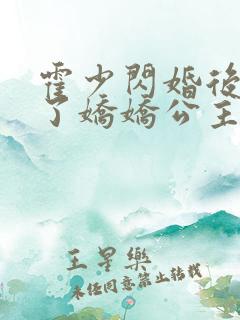 霍少閃婚後
了嬌嬌公主
王星樂
未經同意禁止轉載